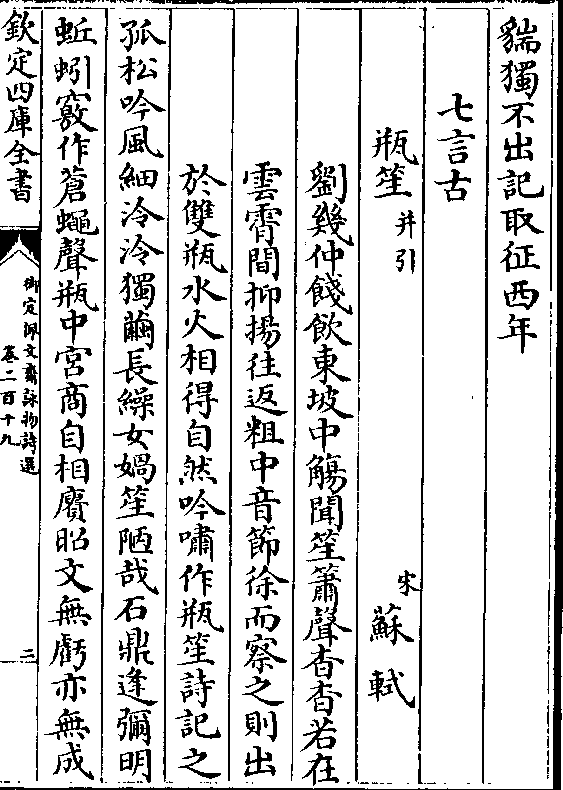 貒獨不出記取征西年
七言古
瓶笙并引 宋蘇軾
劉幾仲餞飲東坡中觴聞笙簫聲杳杳若在
雲霄間抑揚往返粗中音節徐而察之則出
於雙瓶水火相得自然吟嘯作瓶笙詩記之
孤松吟風細泠泠獨繭長繰女媧笙陋哉石鼎逢彌明
蚯蚓竅作蒼蠅聲瓶中宮商自相賡昭文無虧亦無成
欽定四庫全書
御定佩文齋詠物詩選
卷二百十九
三